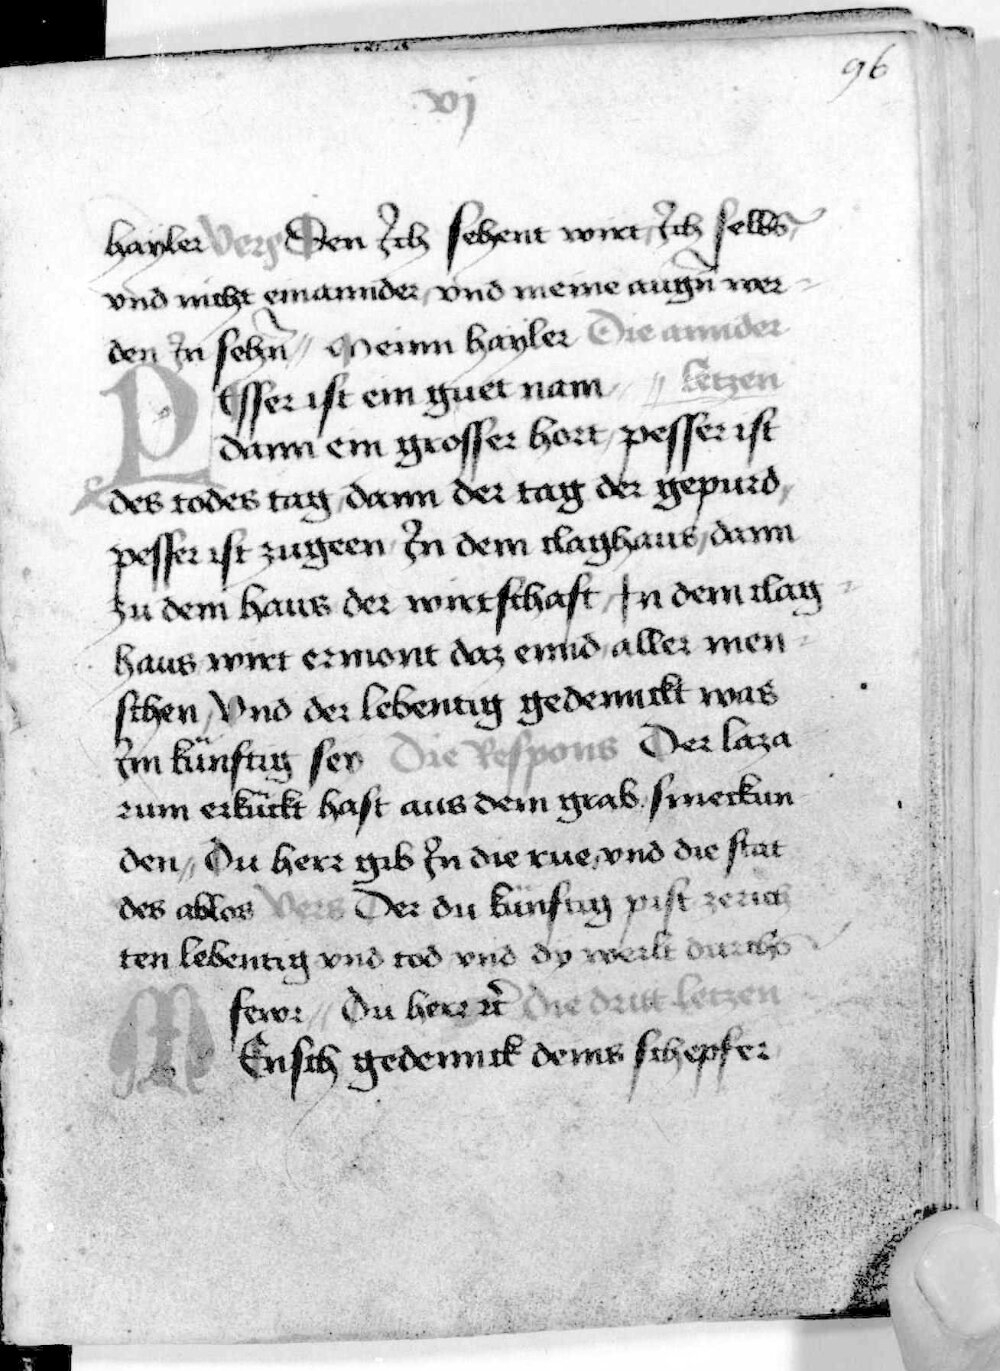 96
vj
hayler Vers Den Ich sehent wirt, Ich selbs,
vnd nicht ein annder, vnd meine augñ wer-
den In sehñ // Meinn hayler Die annder
Esser ist ein guet nam // letzen
P dann ein grosser hort, pesser ist
des todes tag, dann der tag der gepurd,
pesser ist zugeen In dem claghaus, dann
zu dem haus der wirtschaft, In dem clag-
haus wirt ermont daz ennd aller men-
schen, Vnd der lebentig gedennckt was
Im künftig sey Die Respons Der laza
rum erkückt hast aus dem grab smeckun
den // Du herr gib In die rue, vnd die stat
des ablos Vers Der du künftig pist zerich
ten lebentig vnd tod vnd dy werlt durchs
fewr // Du herr rc Die dritt letzen
M Ensch gedennck deins schepfer